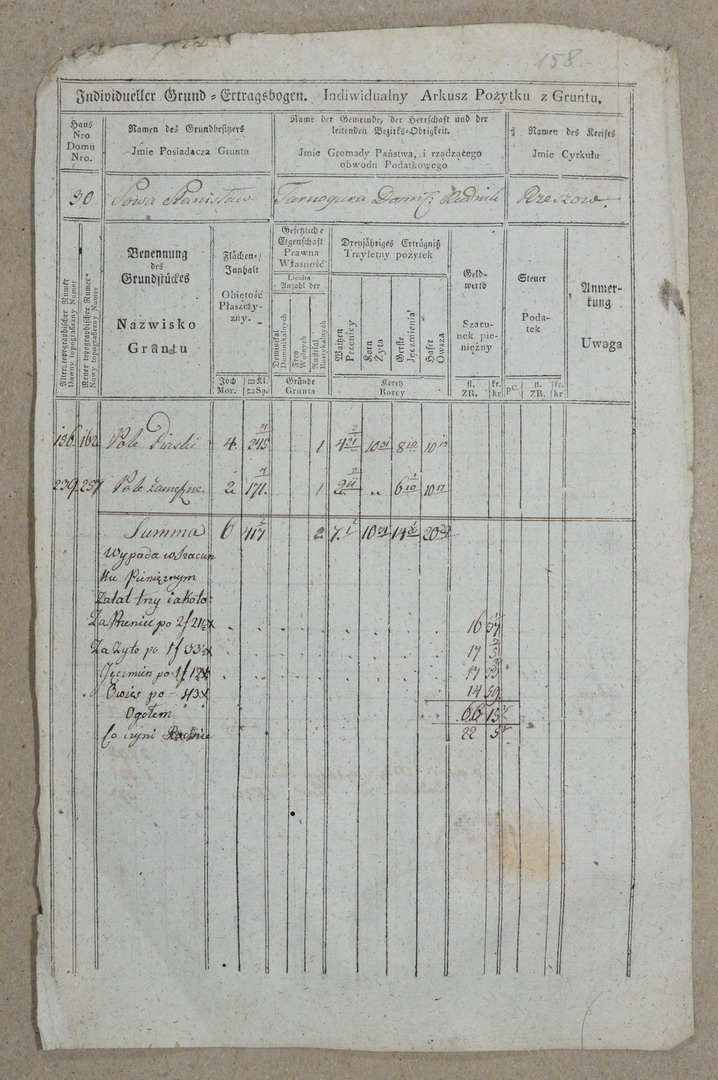 158
Individueller Grund-Ertragsbogen. Indiwidualny Arkusz Pożytku z Gruntu.
Haus Nro Domu Nro.
Namen des Grundbesitzers
Jmie Posiadacza Gruntu
Name der Gemeinde, der Herrschaft und der
leitenden Bezirks-Obrigkeit.
Jmie Gromady Państwa, i rządzącego
obwodu Podatkowego
Namen des Kreises
Jmie Cyrkułu
30 Sowa Stanisław Tarnogura Domin: Rudnik Rzeszow
Alter topographischer Numer
Dawny topograficzny Numer
Neuer topographischer Numer
Nowy topograficzny Numer
Benennung
des
Grundstückes
Nazwisko
Gruntu
Flächen-
Innhalt
Obiętość
Płaszczy-
zny.
Joch
Mor.
Kl.
Są.
Gesetzliche
Eigenschaft
Prawna
Własność
Liczba
Anzahl der
Dominikal
Dominikalnych
Frey
Wolnych
Rustikal
Rustykalnych
Gründe
Grunta
Dreyjähriges Erträgniß
Trzyletny pożytek
Waitzen
Przenicy
Korn
Żyta
Gerste
Jęczmienia
Hafer
Owsza
Koretz
Korcy
Geld-
werth
Szacu-
nek pie-
niężny
fl.
ZR.
kr.
kr
Steuer
Poda-
tek
pC.
fl.
ZR.
kr.
kr
Anmer-
kung
Uwaga
136. 162 Pole Piaski 4. 245 1 10 8 10
239. 257 Pole zamezne. 2 171. 1 „ 6 10
Summa 6 417 2 7. 10 14 20
Wypada w szacun
ku Pieniężnym
Za lat trzy iako to:
Za Przenice po 2 f 21 x 16 57
Za Zyto po 1 f 33 x 17 5
Jęczmien po 1 f 12 x 17
Owies po - 43 x 14 59
Ogołem 66 15
Co czyni Rocznie 22 5